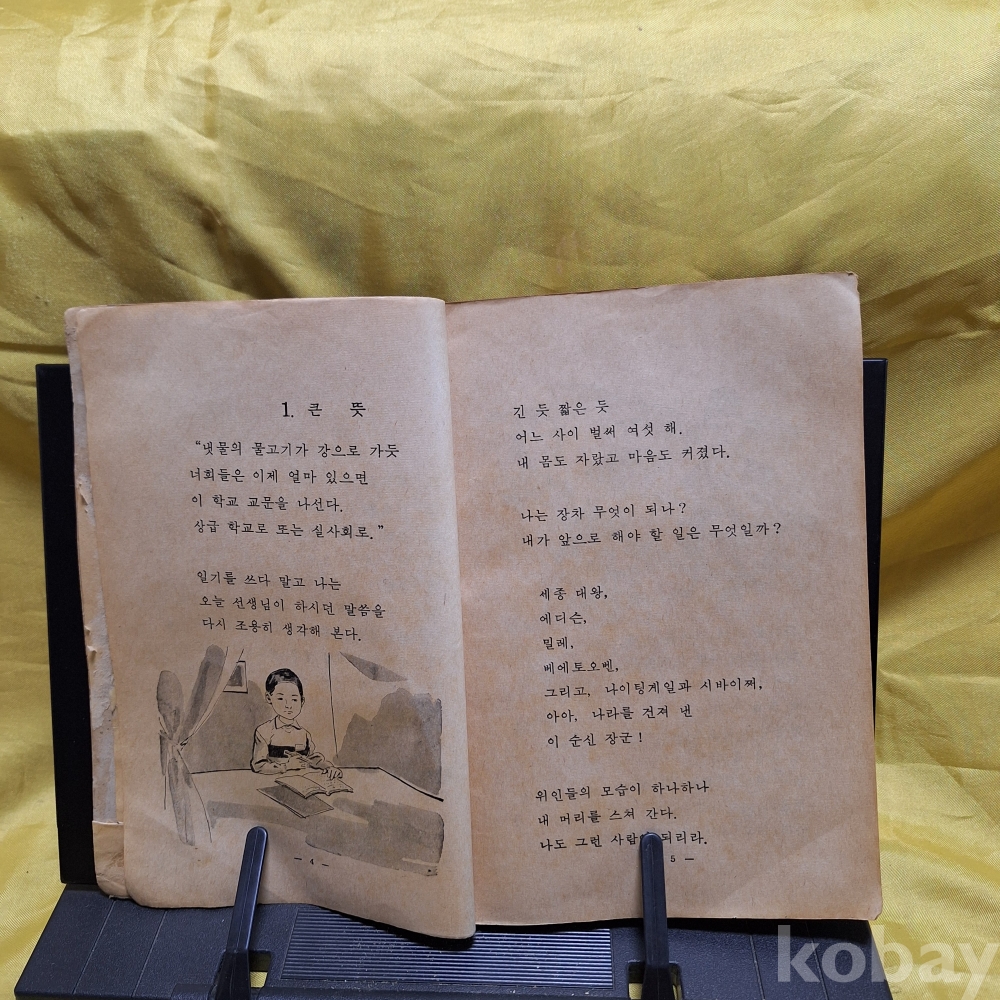 1. 큰 뜻
“냇물의 물고기가 강으로 가듯
너희들은 이제 얼마 있으면
이 학교 교문을 나선다.
상급 학교로 또는 실사회로.”
일기를 쓰다 말고 나는
오늘 선생님이 하시던 말씀을
다시 조용히 생각해 본다.
— 4 —
긴 듯 짧은 듯
어느 사이 벌써 여섯 해.
내 몸도 자랐고 마음도 커졌다.
나는 장차 무엇이 되나?
내가 앞으로 해야 할 일은 무엇일까?
세종 대왕,
에디슨,
밀레,
베에토오벤,
그리고, 나이팅게일과 시바이쩌,
아아, 나라를 건져 낸
이 순신 장군!
위인들의 모습이 하나하나
내 머리를 스쳐 간다.
나도 그런 되리라.
5 —
kobay